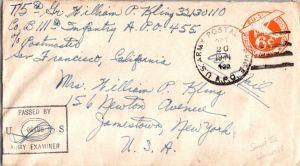 T/5 Gr. William P. Kling 32130110
Co. B 111th Infantry A.P.O. 455
c/o Postmaster
San Francisco, California
U.S. ARMY POSTAL
20
1944
A.P.O.
6¢
Mrs. William P. Kling
156 Newton Avenue
Jamestown, New York.
U. S. A.
PASSED BY
U S
ARMY EXAMINER